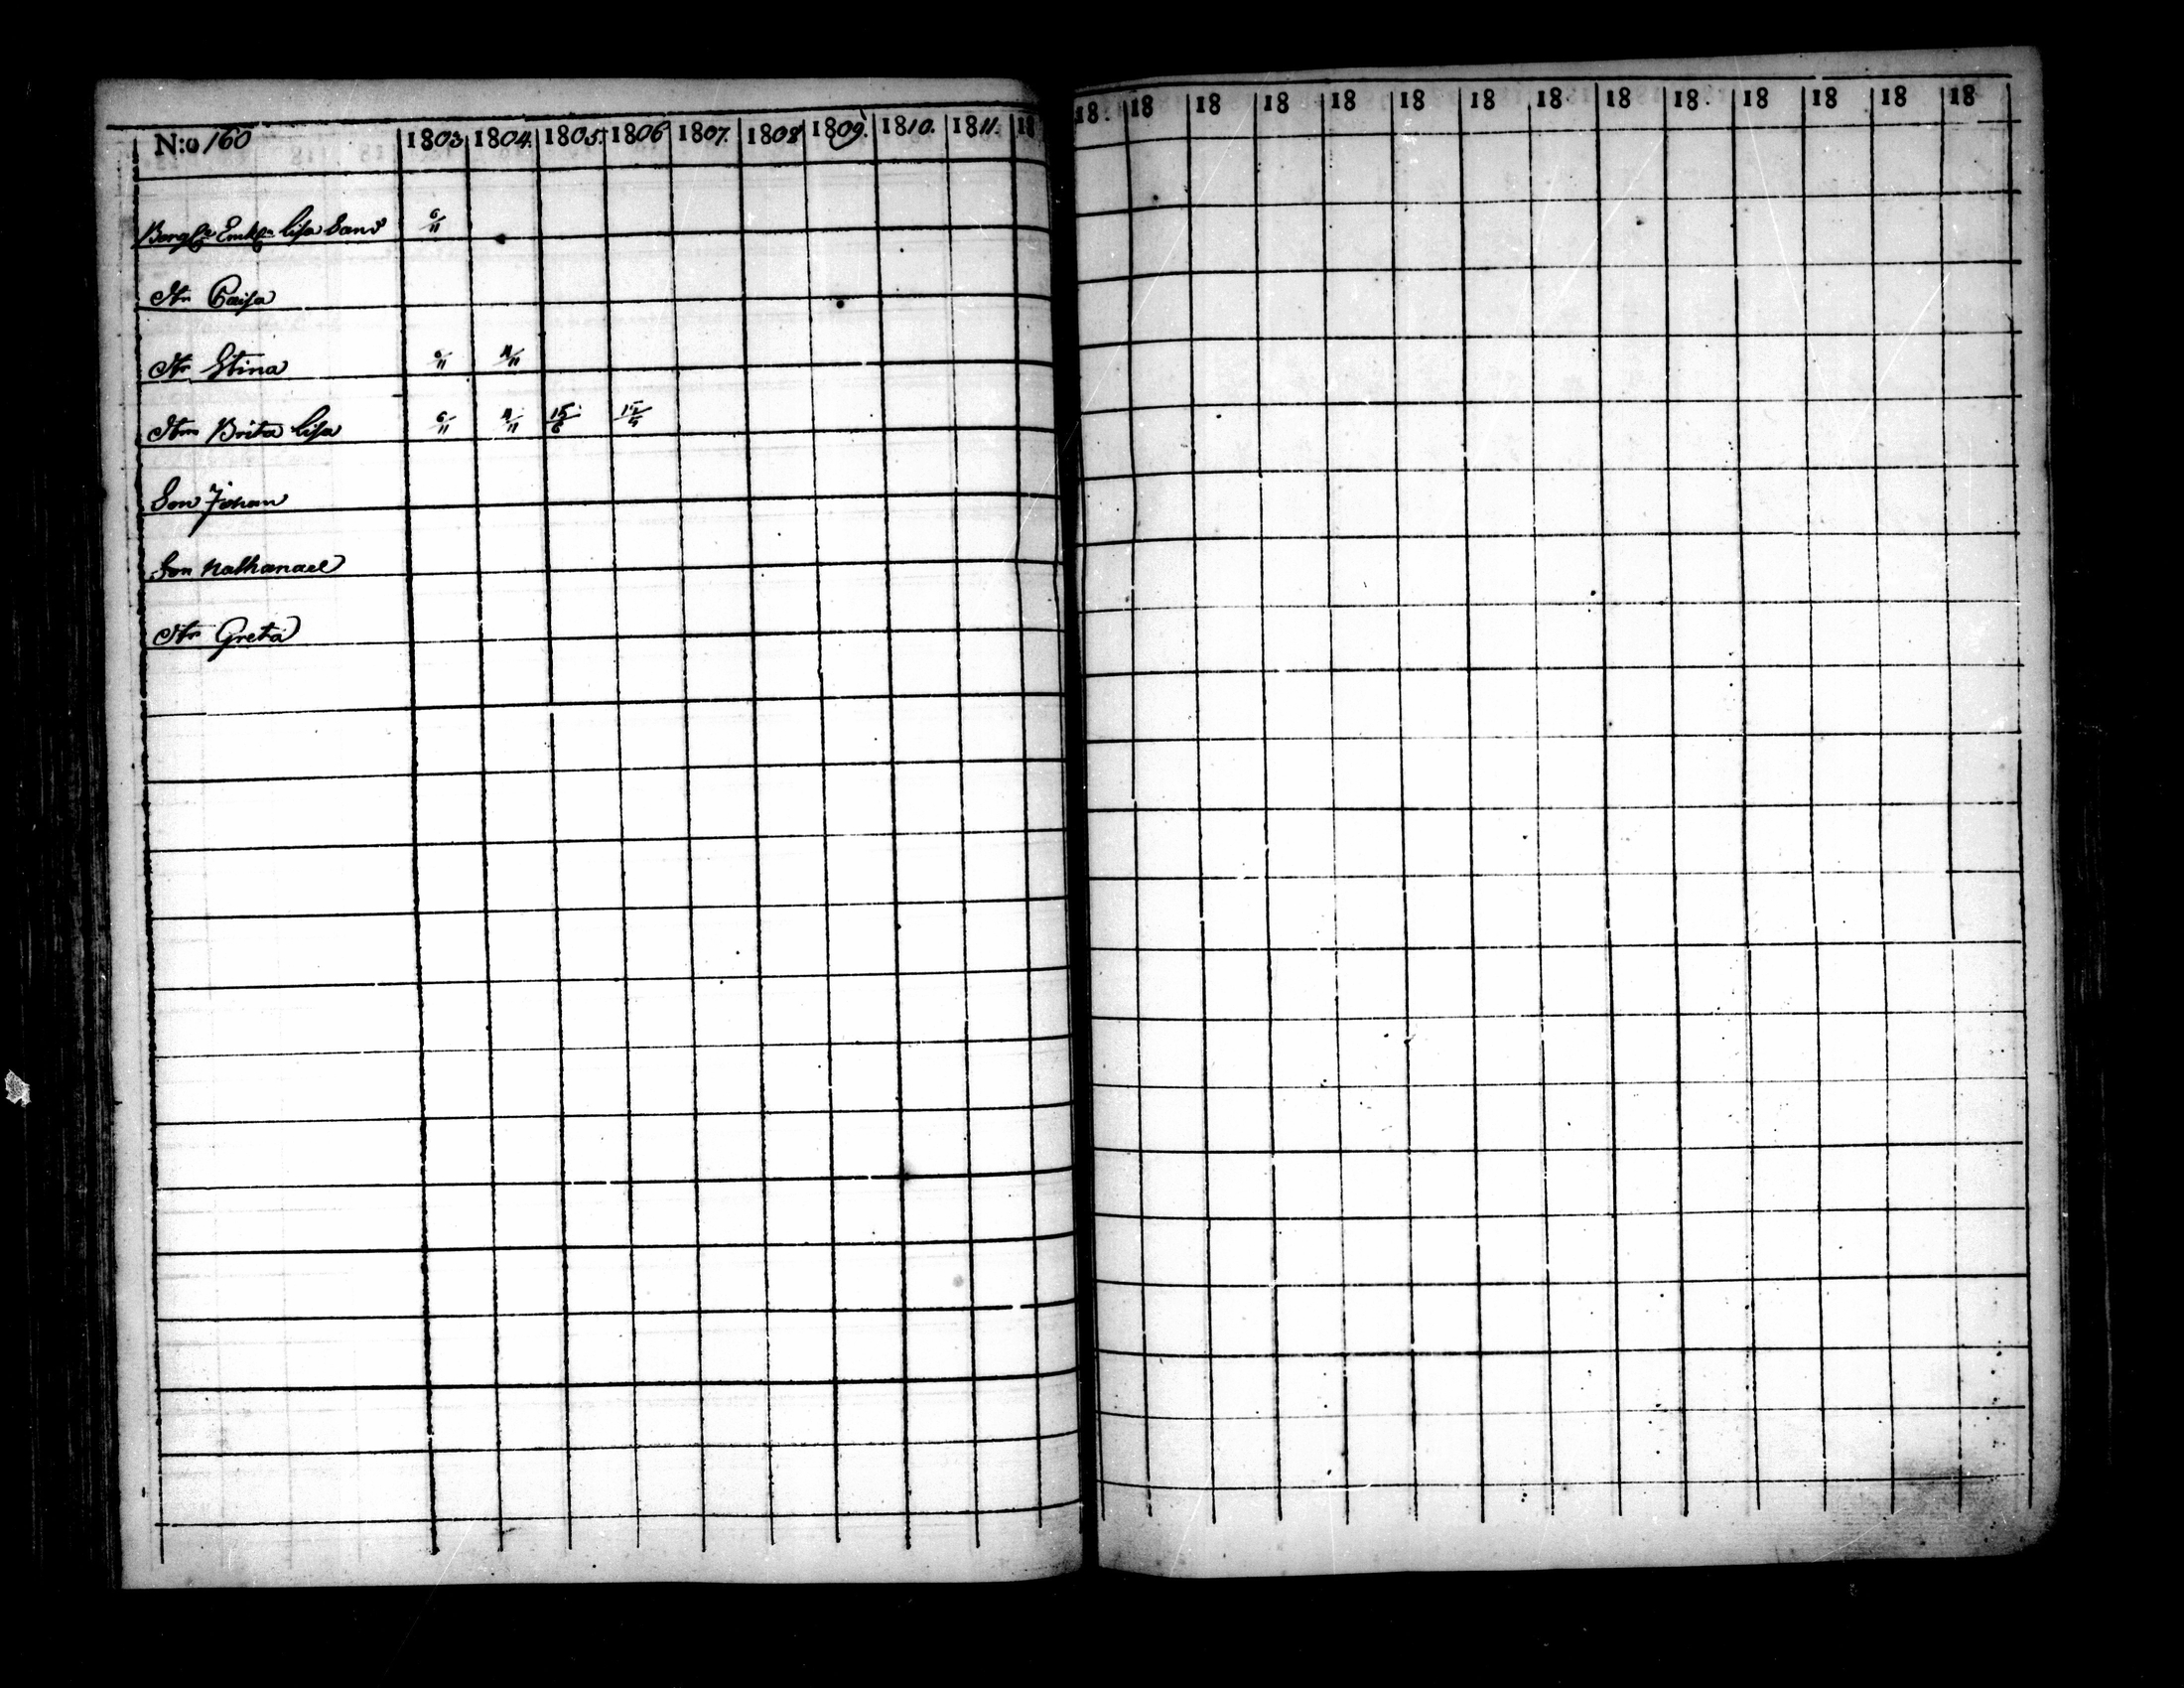 N:o 160 1803 1804. 1805. 1806 1807. 1808 1809. 1810. 1811. 18
Enk lisa Sand 6/11
dtr Caisa
dtr Stina 6/11 4/11
dtr Brita lisa 6/11 4/11 15/6 15/5
Son Johan
Son Nathanael
dtr Greta
18 18 18 18 18 18 18 18 18 18 18 18 18 18